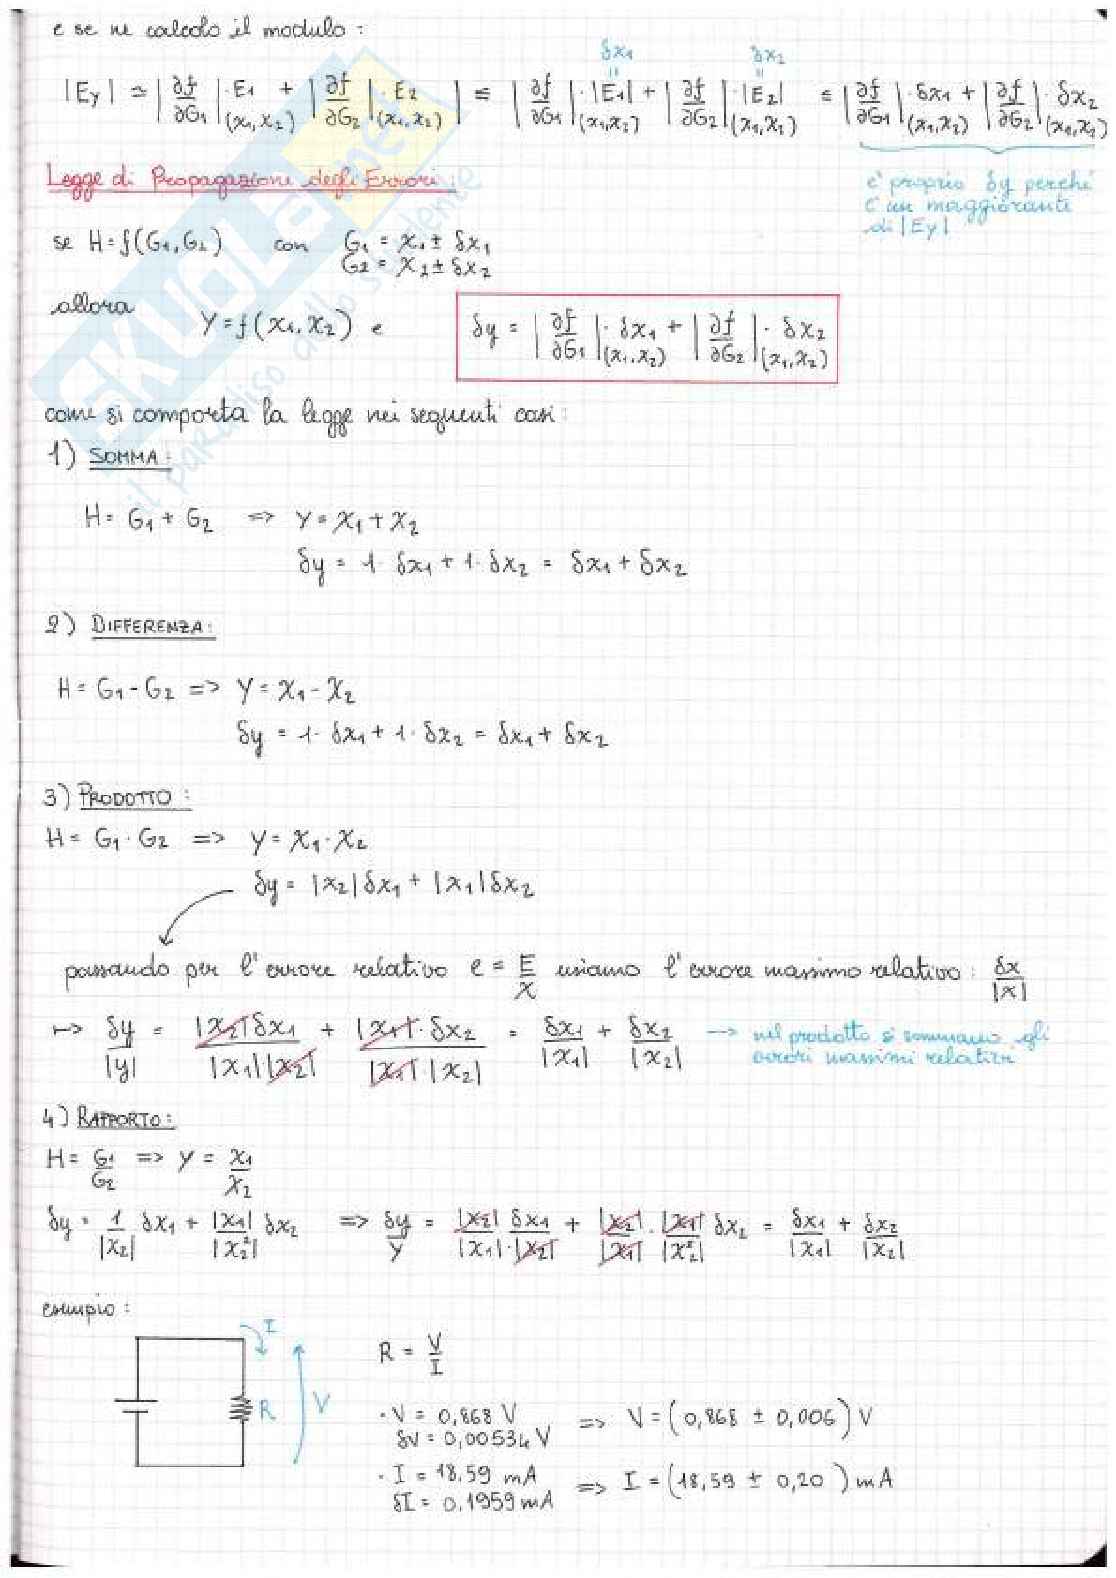 e se ne calcolo il modulo :
δx₁ δx₂
|Ey| ≃ | ∂f/∂G₁ |(x₁,x₂) · E₁ + | ∂f/∂G₂ |(x₁,x₂) · E₂ | ≤ | ∂f/∂G₁ |(x₁,x₂) · |E₁| + | ∂f/∂G₂ |(x₁,x₂) · |E₂| ≤ | ∂f/∂G₁ |(x₁,x₂) · δx₁ + | ∂f/∂G₂ |(x₁,x₂) · δx₂
Legge di Propagazione degli Errori :
e' proprio δy perché
è un maggiorante
di |Ey|
se H = f(G₁,G₂) con G₁ = x₁ ± δx₁
G₂ = x₂ ± δx₂
allora
Y = f(x₁, x₂) e δy = | ∂f/∂G₁ |(x₁,x₂) · δx₁ + | ∂f/∂G₂ |(x₁,x₂) · δx₂
come si comporta la legge nei seguenti casi:
1) SOMMA :
H = G₁ + G₂ => Y = x₁ + x₂
δy = 1 · δx₁ + 1 · δx₂ = δx₁ + δx₂
2) DIFFERENZA :
H = G₁ - G₂ => Y = x₁ - x₂
δy = 1 · δx₁ + 1 · δx₂ = δx₁ + δx₂
3) PRODOTTO :
H = G₁ · G₂ => Y = x₁ · x₂
δy = |x₂| δx₁ + |x₁| δx₂
passando per l'errore relativo e = E/x usiamo l'errore massimo relativo : δx/|x|
↦ δy/|y| = |x₂| δx₁/|x₁||x₂| + |x₁| · δx₂/|x₁| · |x₂| = δx₁/|x₁| + δx₂/|x₂| → nel prodotto si sommano gli
errori massimi relativi
4) RAPPORTO :
H = G₁/G₂ => Y = x₁/x₂
δy = 1/|x₂| δx₁ + |x₁|/|x₂²| δx₂ => δy/Y = |x₂| δx₁/|x₁| · |x₂| + |x₂|/|x₁| · |x₁|/|x₂²| δx₂ = δx₁/|x₁| + δx₂/|x₂|
esempio :
I
R
V
R = V/I
· V = 0,868 V => V = (0,868 ± 0,006) V
δV = 0,00534 V
· I = 18,59 mA => I = (18,59 ± 0,20) mA
δI = 0,1959 mA
SKUOLA.net
il paradiso dello studente